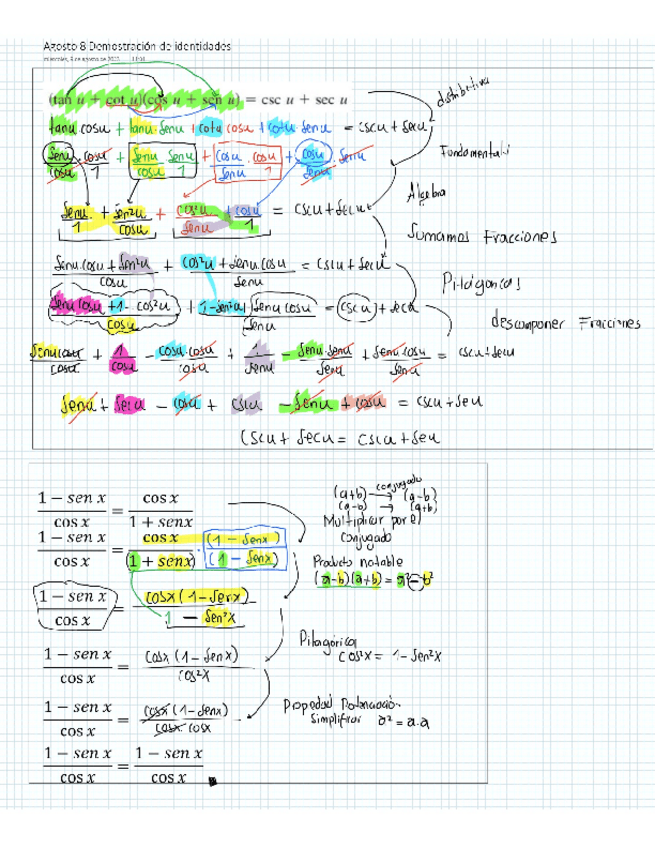 Agosto 8 Demostración de identidades
miércoles, 9 de agosto de 2023 11:04
(tan u + cot u)(cos u + sen u) = csc u + sec u
distributiva
tanu cosu + tanu·senu + cotu cosu + cotu·senu = cscu + secu
Fundamental
senu/cosu · cosu/1 + senu/cosu · senu/1 + cosu/senu · cosu/1 + cosu/senu · senu
Álgebra
senu/1 + sen²u/cosu + cos²u/senu + cosu/1 = cscu + secu
Sumamos Fracciones
senu·cosu + sen²u/cosu + cos²u + senu·cosu/senu = cscu + secu
Pitágoricas
senu cosu + 1 - cos²u/cosu + 1 - sen²u + senu cosu/senu = cscu + secu
descomponer Fracciones
senu cosu/cosu + 1/cosu - cosu·cosu/cosu + 1/senu - senu·senu/senu + senu·cosu/senu = cscu + secu
senu + secu - cosu + cscu - senu + cosu = cscu + secu
cscu + secu = cscu + secu
1 − sen x / cos x = cos x / 1 + senx
(a+b) conjugado → (a-b)
(a-b) → (a+b)
Multiplicar por el
Conjugado
1 − sen x / cos x = cos x / (1 + senx) · (1 - senx) / (1 - senx)
Producto notable
(a-b)(a+b) = a² - b²
1 − sen x / cos x = cosx (1 - senx) / 1 - sen²x
Pitagórica
cos²x = 1 - sen²x
1 − sen x / cos x = cosx (1 - senx) / cos²x
Propiedad Potenciación
Simplificar a² = a.a
1 − sen x / cos x = cosx (1 - senx) / cosx cosx
1 − sen x / cos x = 1 − sen x / cos x